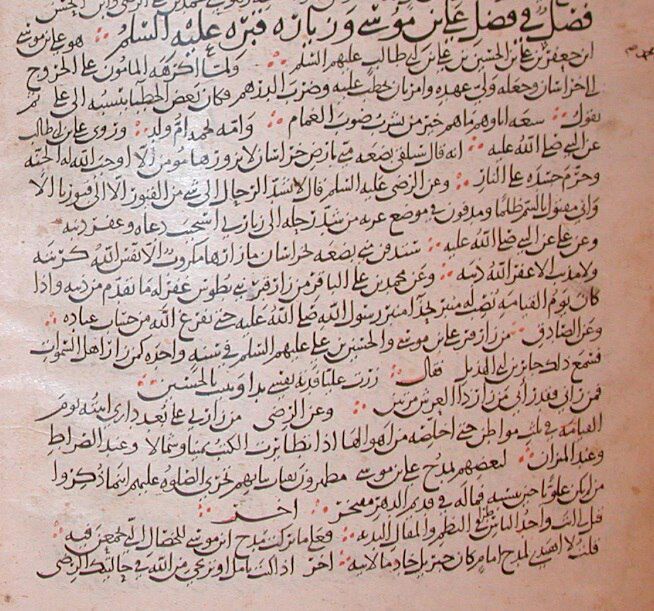 فصل في فضل علي بن موسى وزيارة قبره عليه السلم هو علي بن موسى
ابن جعفر بن محمد بن علي بن الحسين بن علي بن ابي طالب عليهم السلم ولما اكرهه المامون على الخروج
الى خراسان وجعله ولي عهده وامر بان يخطب عليه وضرب الدرهم فكان بعض الخطبا ينسبه الى علي ثم
يقول ستة اباوهم ماهم خير من يشرب صوب الغمام وامه نجمه ام ولد وروى علي بن ابي طالب
عن النبي صلى الله عليه انه قال ستدفن بضعة مني بارض خراسان لا يزورها مومن الا اوجب الله له الجنه
وحرم جسده على النار وعن الرضى عليه السلم قال لا تشد الرجال الى شي من القبور الا الى قبورنا الا
واني مقتول بالسم ظلما ومدفون في موضع غربه من شد رحله الى زيارتي استجيب دعاه وغفر ذنبه
وعن علي عن النبي صلى الله عليه ستدفن مني بضعه خراسان ما زارها مكروب الا نفس الله كربته
ولا مذنب الا غفر الله ذنبه وعن محمد بن علي الباقر من زار قبر ابي بطوس غفر له ما تقدم من ذنبه واذا
كان يوم القيامه نصب له منبر بحذا منبر رسول الله صلى الله عليه حتى يفرغ الله من حساب عباده
وعن الصادق من زار قبر علي بن موسى والحسين بن علي عليهم السلم في سنه واحده كمن زار اهل السموات
فسمع ذلك جابر بن ابي الهذيل فقال زرت عليا
فمن زارني فقد زار ابي من زار ذا العرش مرتين وعن الرضى من زارني على بعد داري اتيته يوم
القيامه في ثلث مواطن حتى اخلصه من اهوالها اذا تطايرت الكتب يمينا وشمالا وعند الصراط
وعند الميزان لبعضهم لمدح علي بن موسى مطهرون نقيات ثيابهم تجري الصلوة عليهم اينما ذكروا
من لم يكن علويا حين تنسبه فماله في قديم الدهر مفتخر اخر
قيل لي انت واحد الناس طرا في النظم والمقال البديه فعلى ما تركت مدح ابن موسى للخصال التي تجمعن فيه
قلت لا اهتدي لمدح امام كان جبريل خادما لابيه اخر اذا كنت تامل او ترتجي من الله في حالتيك الرضى